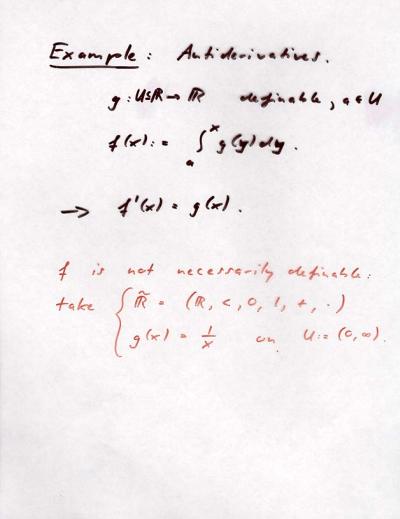 Example: Antiderivatives.
g: U⊆ℝ → ℝ definable, a ∈ U
f(x) := ∫ₐˣ g(y)dy.
→ f'(x) = g(x).
f is not necessarily definable:
take { ℝ̃ = (ℝ, <, 0, 1, +, ·)
g(x) = 1/x on U := (0, ∞).